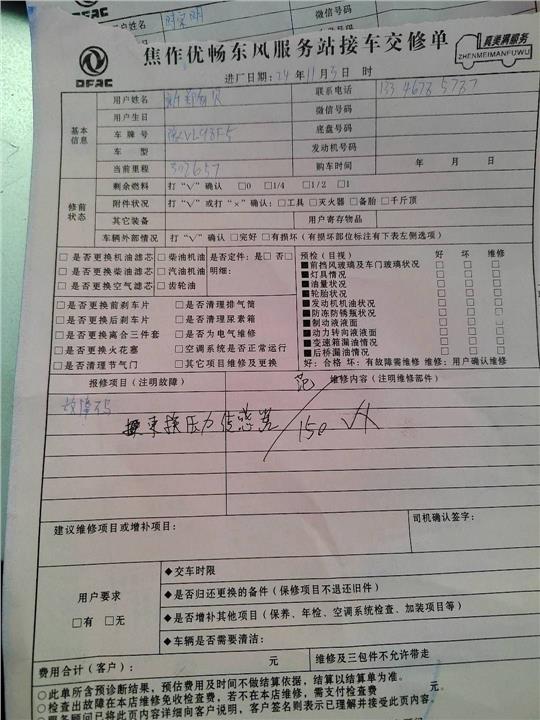 客户姓名
微信号码
DFAC
焦作优畅东风服务站接车交修单
真美满服务
ZHENMEIMANFUWU
进厂日期：24 年 11 月 3 日 时
基本信息
用户姓名
联系电话
用户生日
微信号码
车牌号
底盘号码
车 型
发动机号码
当前里程 307657
购车时间 年 月 日
修前状态
剩余燃料 打“√”确认 □0 □1/4 □1/2 □1
附件状况 打“√”或打“×”确认：□工具 □灭火器 □备胎 □千斤顶
其它装备
用户寄存物品
车辆外部情况 打“√”确认 □完好 □有损坏（有损坏部位标注有下表左侧选项）
□是否更换机油滤芯 □柴油机油 是否定件：是□ 否□
□是否更换柴油滤芯 □汽油机油 明细：
□是否更换空气滤芯 □齿轮油
□是否更换前刹车片 □是否清理排气筒
□是否更换后刹车片 □是否清理尿素箱
□是否更换离合三件套 □是否为电气维修
□是否更换火花塞 □空调系统是否正常运行
□是否清理节气门 □其它项目维修及更换
预检（目视） 好 坏 维修
■前挡风玻璃及车门玻璃状况 □ □ □
■灯具情况 □ □ □
■油量状况 □ □ □
■轮胎状况 □ □ □
■发动机机油状况 □ □ □
■防冻防锈瓶状况 □ □ □
■制动液液面 □ □ □
■动力转向液液面 □ □ □
■变速箱漏油情况 □ □ □
■后桥漏油情况 □ □ □
好：合格 坏：有故障需维修 维修：用户确认维修
报修项目（注明故障）
维修内容（注明维修部件）
换来换压力传感器
150
建议维修项目或增补项目：
司机确认签字：
用户要求
□有 □无
◆交车时限
◆是否归还更换的备件（保修项目不退还旧件）
◆是否增补其他项目（保养、年检、空调系统检查、加装项目等）
◆车辆是否需要清洁：
费用合计（客户）： 元
维修及三包件不允许带走
○此单所含预诊断结果，预估费用及时间不做结算依据，结算以结算单为准。
○检查出故障在本店维修免收检查费，若不在本店维修，需支付检查费 元。
○服务顾问已将此页内容详细向客户说明，客户签名则表示已理解并接受此页内容。